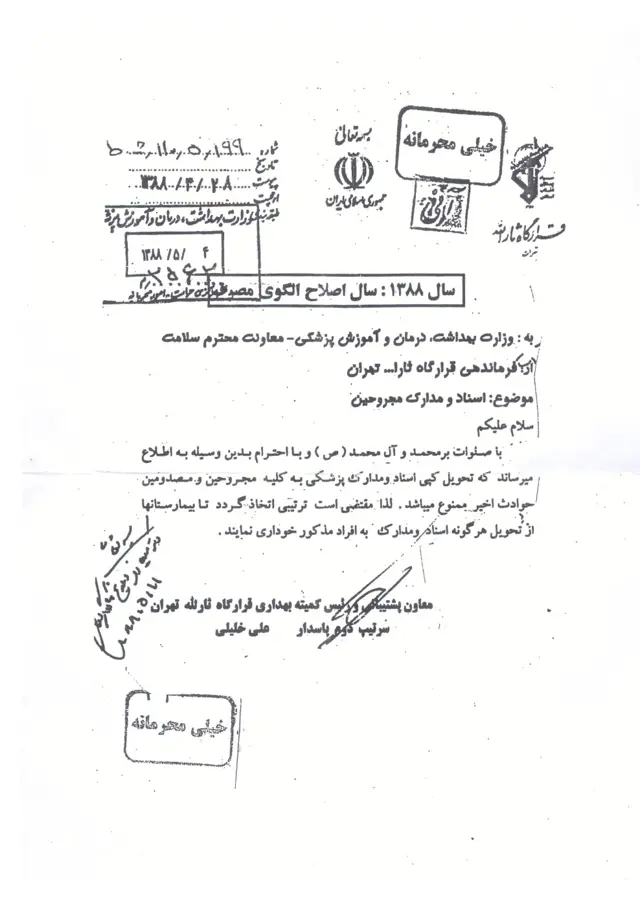 خیلی محرمانه
بسمه تعالی
جمهوری اسلامی ایران
آنی
قرارگاه ثارالله
تهران
شماره
تاریخ
پیوست
۱۳۸۸/۴/۲۸
وزارت بهداشت، درمان و آموزش پزشکی
۱۳۸۸/۵/۴
سال ۱۳۸۸: سال اصلاح الگوی مصرف
به: وزارت بهداشت، درمان و آموزش پزشکی- معاونت محترم سلامت
از: فرماندهی قرارگاه ثارا... تهران
موضوع: اسناد و مدارک مجروحین
سلام علیکم
با صلوات برمحمد و آل محمد (ص) و با احترام بدین وسیله به اطلاع
میرساند که تحویل کپی اسناد ومدارک پزشکی به کلیه مجروحین و مصدومین
حوادث اخیر ممنوع میباشد. لذا مقتضی است ترتیبی اتخاذ گردد تا بیمارستانها
از تحویل هرگونه اسناد ومدارک به افراد مذکور خوداری نمایند.
معاون پشتیبانی و رئیس کمیته بهداری قرارگاه ثارلله تهران
سرتیپ دوم پاسدار علی خلیلی
خیلی محرمانه